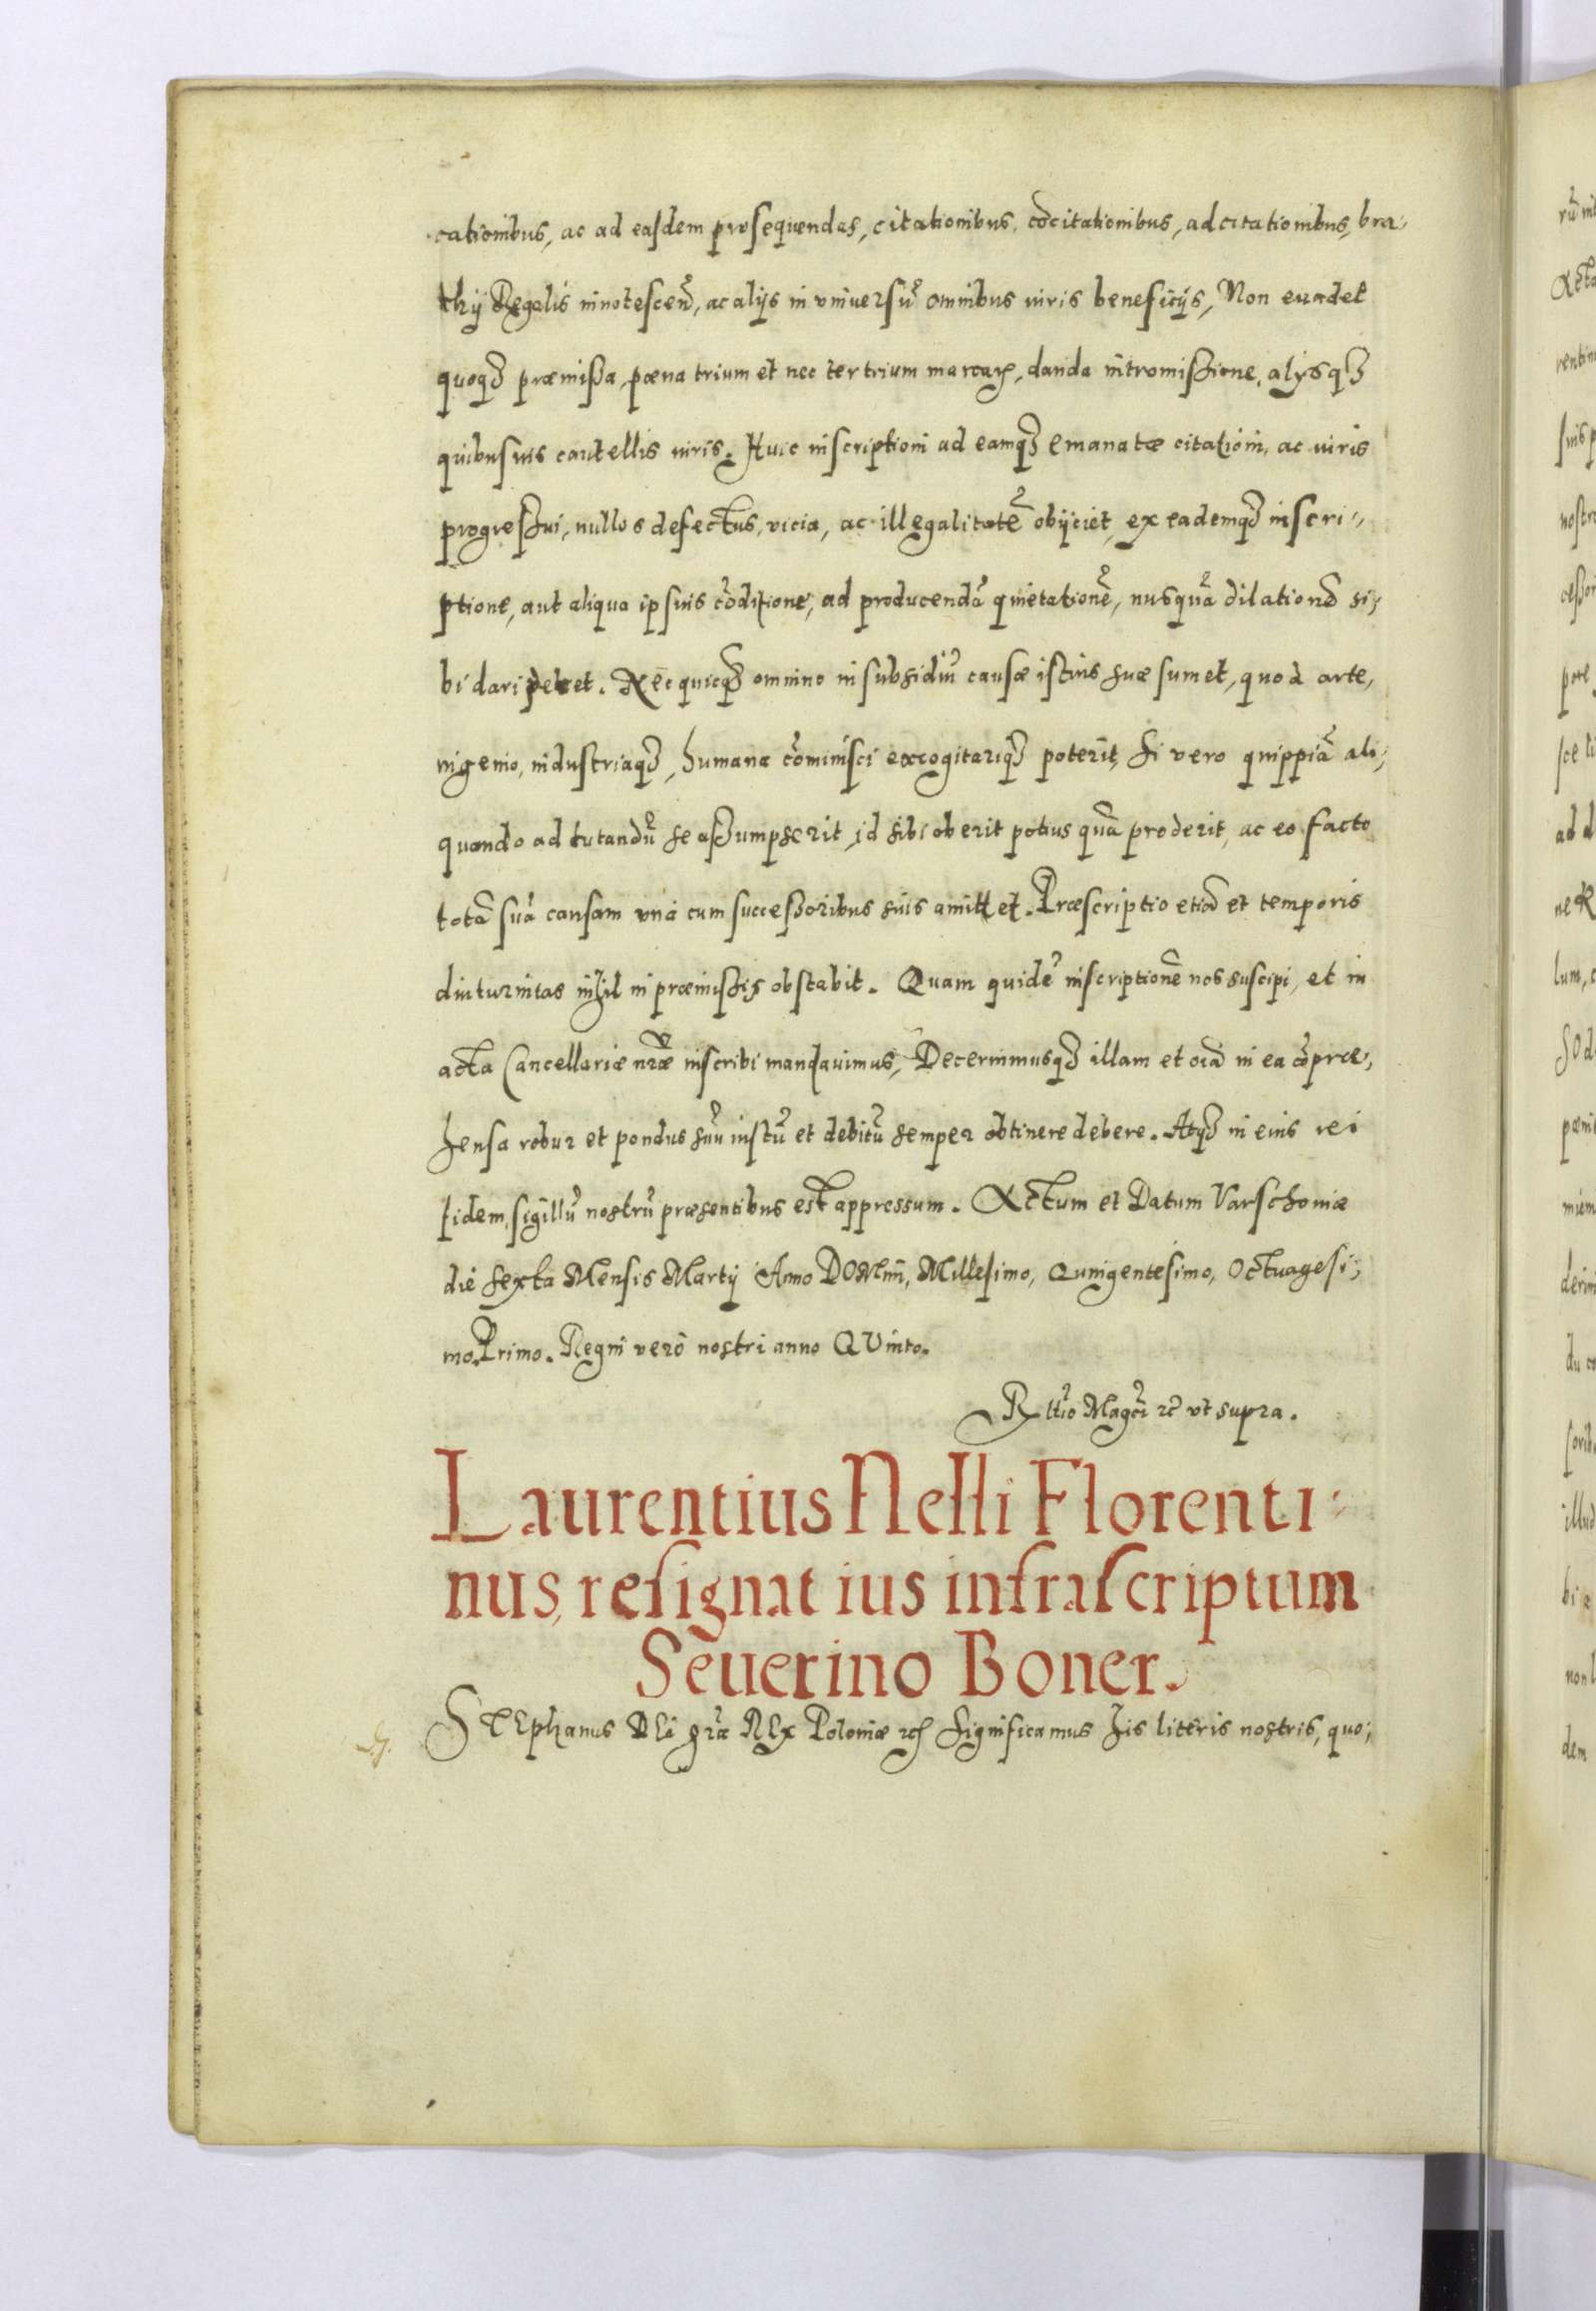 cationibus, ac ad easdem prosequendas, citationibus, cōcitationibus, adcitationibus, bra-
chÿ Regalis innotescen̄, ac alÿs in vniuersū omnibus iuris beneficÿs, Non euadet
quoqꝫ præmissa, pœna trium et nec ter trium marcaꝝ, danda intromissione, alÿsqꝫ
quibusuis cautellis iuris. Huic inscriptioni ad eamqꝫ emanatæ citationi, ac iuris
progressui, nullos defectus, vicia, ac illegalitatē obÿciet, ex eademqꝫ inscri-
ptione, aut aliqua ipsius cōditione, ad producendā quietationē, nusquā dilationē si-
bi dari petet. Nec quicqꝫ omnino in subsidiū causæ istius suæ sumet, quod arte,
ingenio, industriaqꝫ, humana cōminisci excogitariqꝫ poterit, si vero quippiā ali-
quando ad tutandū se assumpserit, id sibi oberit potius quā proderit, ac eo facto
totā suā causam vnà cum successoribus suis amittet. Præscriptio etiā et temporis
diuturnitas nihil in præmissis obstabit. Quam quidē inscriptionē nos suscipi, et in
acta Cancellariæ nr̄æ inscribi mandauimus, Decernimusqꝫ illam et oīa in ea cōpræ-
hensa robur et pondus suū iustū et debitū semper obtinere debere. Atqꝫ in eius rei
fidem, sigillū nostrū præsentibus est appressum. Actum et Datum Varschouiæ
die sexta Mensis Martÿ Anno DOMini, Millesimo, Quingentesimo, Octuagesi-
mo Primo. Regni verò nostri anno QVinto.
Rllīo Magc̄i ꝛc̄ vt supra.
Laurentius Nelli Florenti-
nus, resignat ius infrascriptum
Seuerino Boner.
STEphanus DEi gr̄a REx Poloniæ ꝛc̄ Significamus his literis nostris, quo-